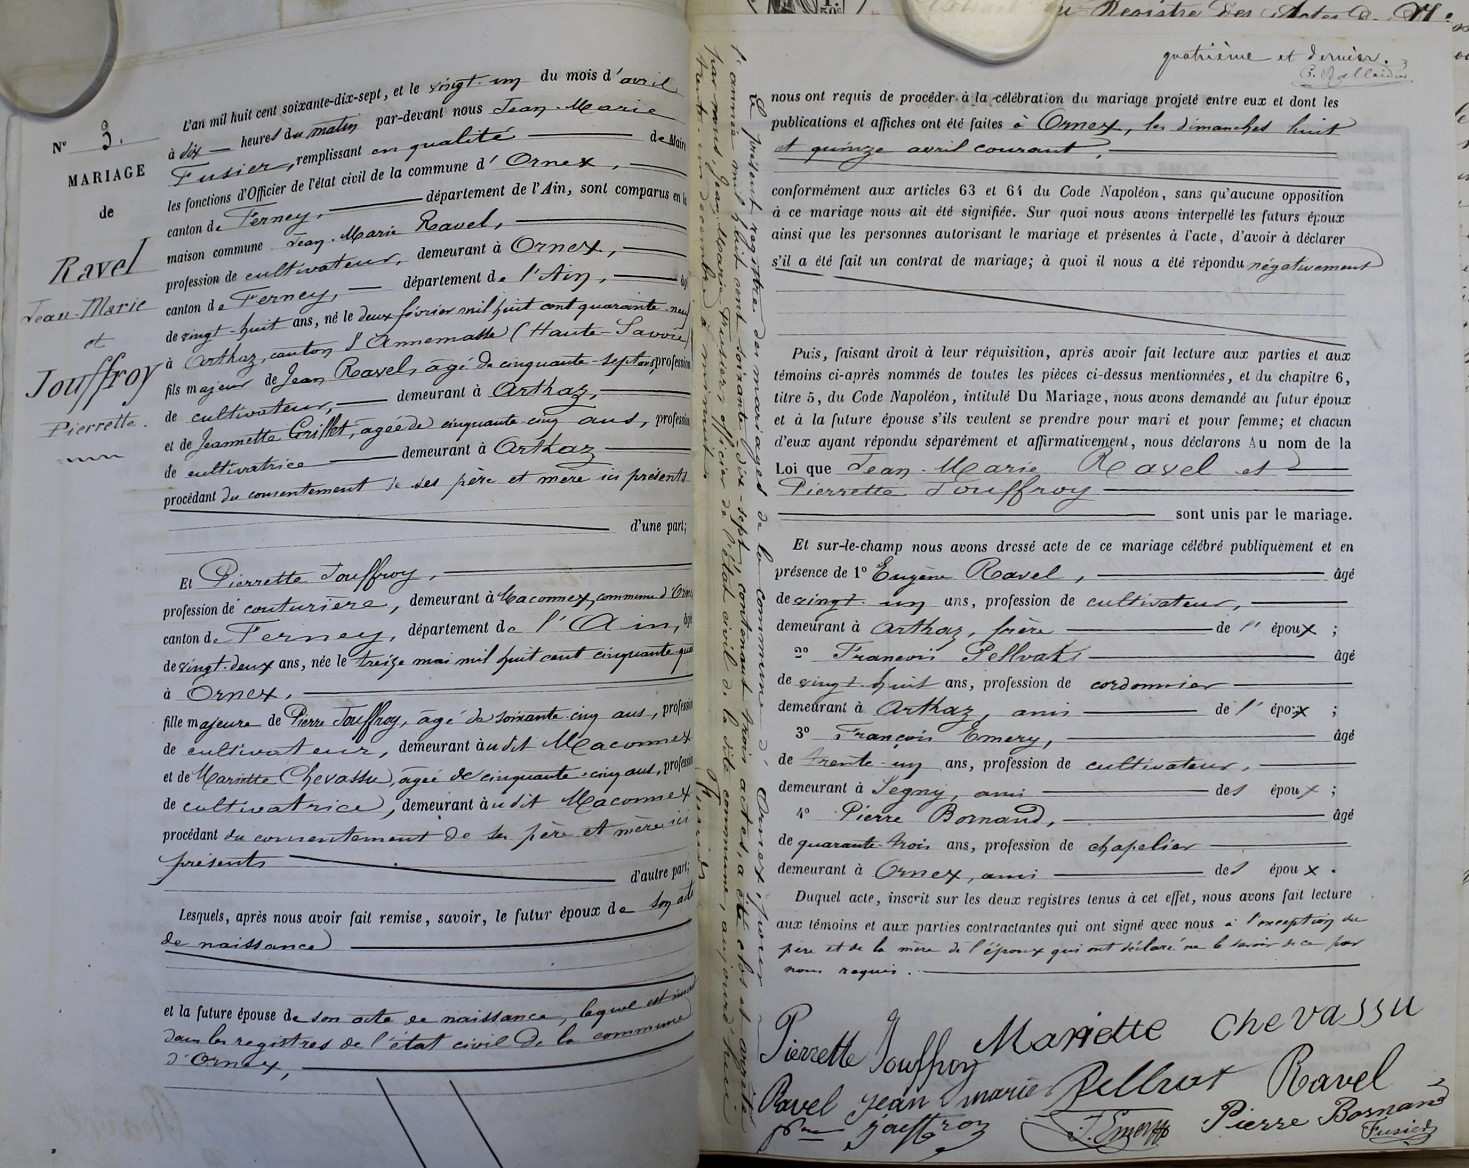 N° 3.
MARIAGE
de
Ravel
Jean-Marie
et
Jouffroy
Pierrette.
L'an mil huit cent soixante-dix-sept, et le vingt-un du mois d'avril
à dix heures du matin par-devant nous Jean-Marie
Fusier, remplissant en qualité de Maire
les fonctions d'Officier de l'état civil de la commune d'Ornex,
canton de Ferney, département de l'Ain, sont comparus en la
maison commune Jean-Marie Ravel,
profession de cultivateur, demeurant à Ornex,
canton de Ferney, département de l'Ain, âgé
de vingt-huit ans, né le deux février mil huit cent quarante-neuf
à Arthaz, canton d'Annemasse (Haute-Savoie)
fils majeur de Jean Ravel, âgé de cinquante-sept ans, profession
de cultivateur, demeurant à Arthaz,
et de Jeannette Grillet, agée de cinquante cinq ans, profession
de cultivatrice demeurant à Arthaz
procédant du consentement de ses père et mère ici présents
d'une part;
Et Pierrette Jouffroy,
profession de couturière, demeurant à Maconnex, commune d'Ornex
canton de Ferney, département de l'Ain, âgée
de vingt-deux ans, née le treize mai mil huit cent cinquante-quatre
à Ornex,
fille majeure de Pierre Jouffroy, âgé de soixante-cinq ans, profession
de cultivateur, demeurant àudit Maconnex
et de Mariette Chevassu, âgée de cinquante-cinq ans, profession
de cultivatrice, demeurant àudit Maconnex
procédant du consentement de ses père et mère ici
présents
d'autre part;
Lesquels, après nous avoir fait remise, savoir, le futur époux de son acte
de naissance
et la future épouse de son acte de naissance, lequel est inscrit
dans les registres de l'état civil de la commune
d'Ornex,
Le présent registre des mariages de la commune d'Ornex, pour
l'année mil huit cent soixante-dix-sept, contenant trois actes, a été clos et arrêté
par nous Jean-Marie Fusier officier de l'état civil de la dite commune, aujourd'hui
trente-un décembre à minuit.
Fusier
quatrième et dernier.
nous ont requis de procéder à la célébration du mariage projeté entre eux et dont les
publications et affiches ont été faites à Ornex, les dimanches huit
et quinze avril courant,
conformément aux articles 63 et 64 du Code Napoléon, sans qu'aucune opposition
à ce mariage nous ait été signifiée. Sur quoi nous avons interpellé les futurs époux
ainsi que les personnes autorisant le mariage et présentes à l'acte, d'avoir à déclarer
s'il a été fait un contrat de mariage; à quoi il nous a été répondu négativement
Puis, faisant droit à leur réquisition, après avoir fait lecture aux parties et aux
témoins ci-après nommés de toutes les pièces ci-dessus mentionnées, et du chapitre 6,
titre 5, du Code Napoléon, intitulé Du Mariage, nous avons demandé au futur époux
et à la future épouse s'ils veulent se prendre pour mari et pour femme; et chacun
d'eux ayant répondu séparément et affirmativement, nous déclarons Au nom de la
Loi que Jean-Marie Ravel et
Pierrette Jouffroy
sont unis par le mariage.
Et sur-le-champ nous avons dressé acte de ce mariage célébré publiquement et en
présence de 1° Eugène Ravel, âgé
de vingt-un ans, profession de cultivateur,
demeurant à Arthaz, frère de l'époux;
2° François Pellvat âgé
de vingt-huit ans, profession de cordonnier
demeurant à Arthaz, ami de l'époux;
3° François Emery, âgé
de trente-un ans, profession de cultivateur,
demeurant à Segny, ami des époux;
4° Pierre Bornand, âgé
de quarante-trois ans, profession de chapelier
demeurant à Ornex, ami des époux.
Duquel acte, inscrit sur les deux registres tenus à cet effet, nous avons fait lecture
aux témoins et aux parties contractantes qui ont signé avec nous à l'exception du
père et de la mère de l'époux qui ont déclaré ne le savoir de ce par
nous requis.
Pierrette Jouffroy Mariette Chevassu
Ravel jean marie Pellvat Ravel
Jouffroy F. Emery Pierre Bornand
Fusier